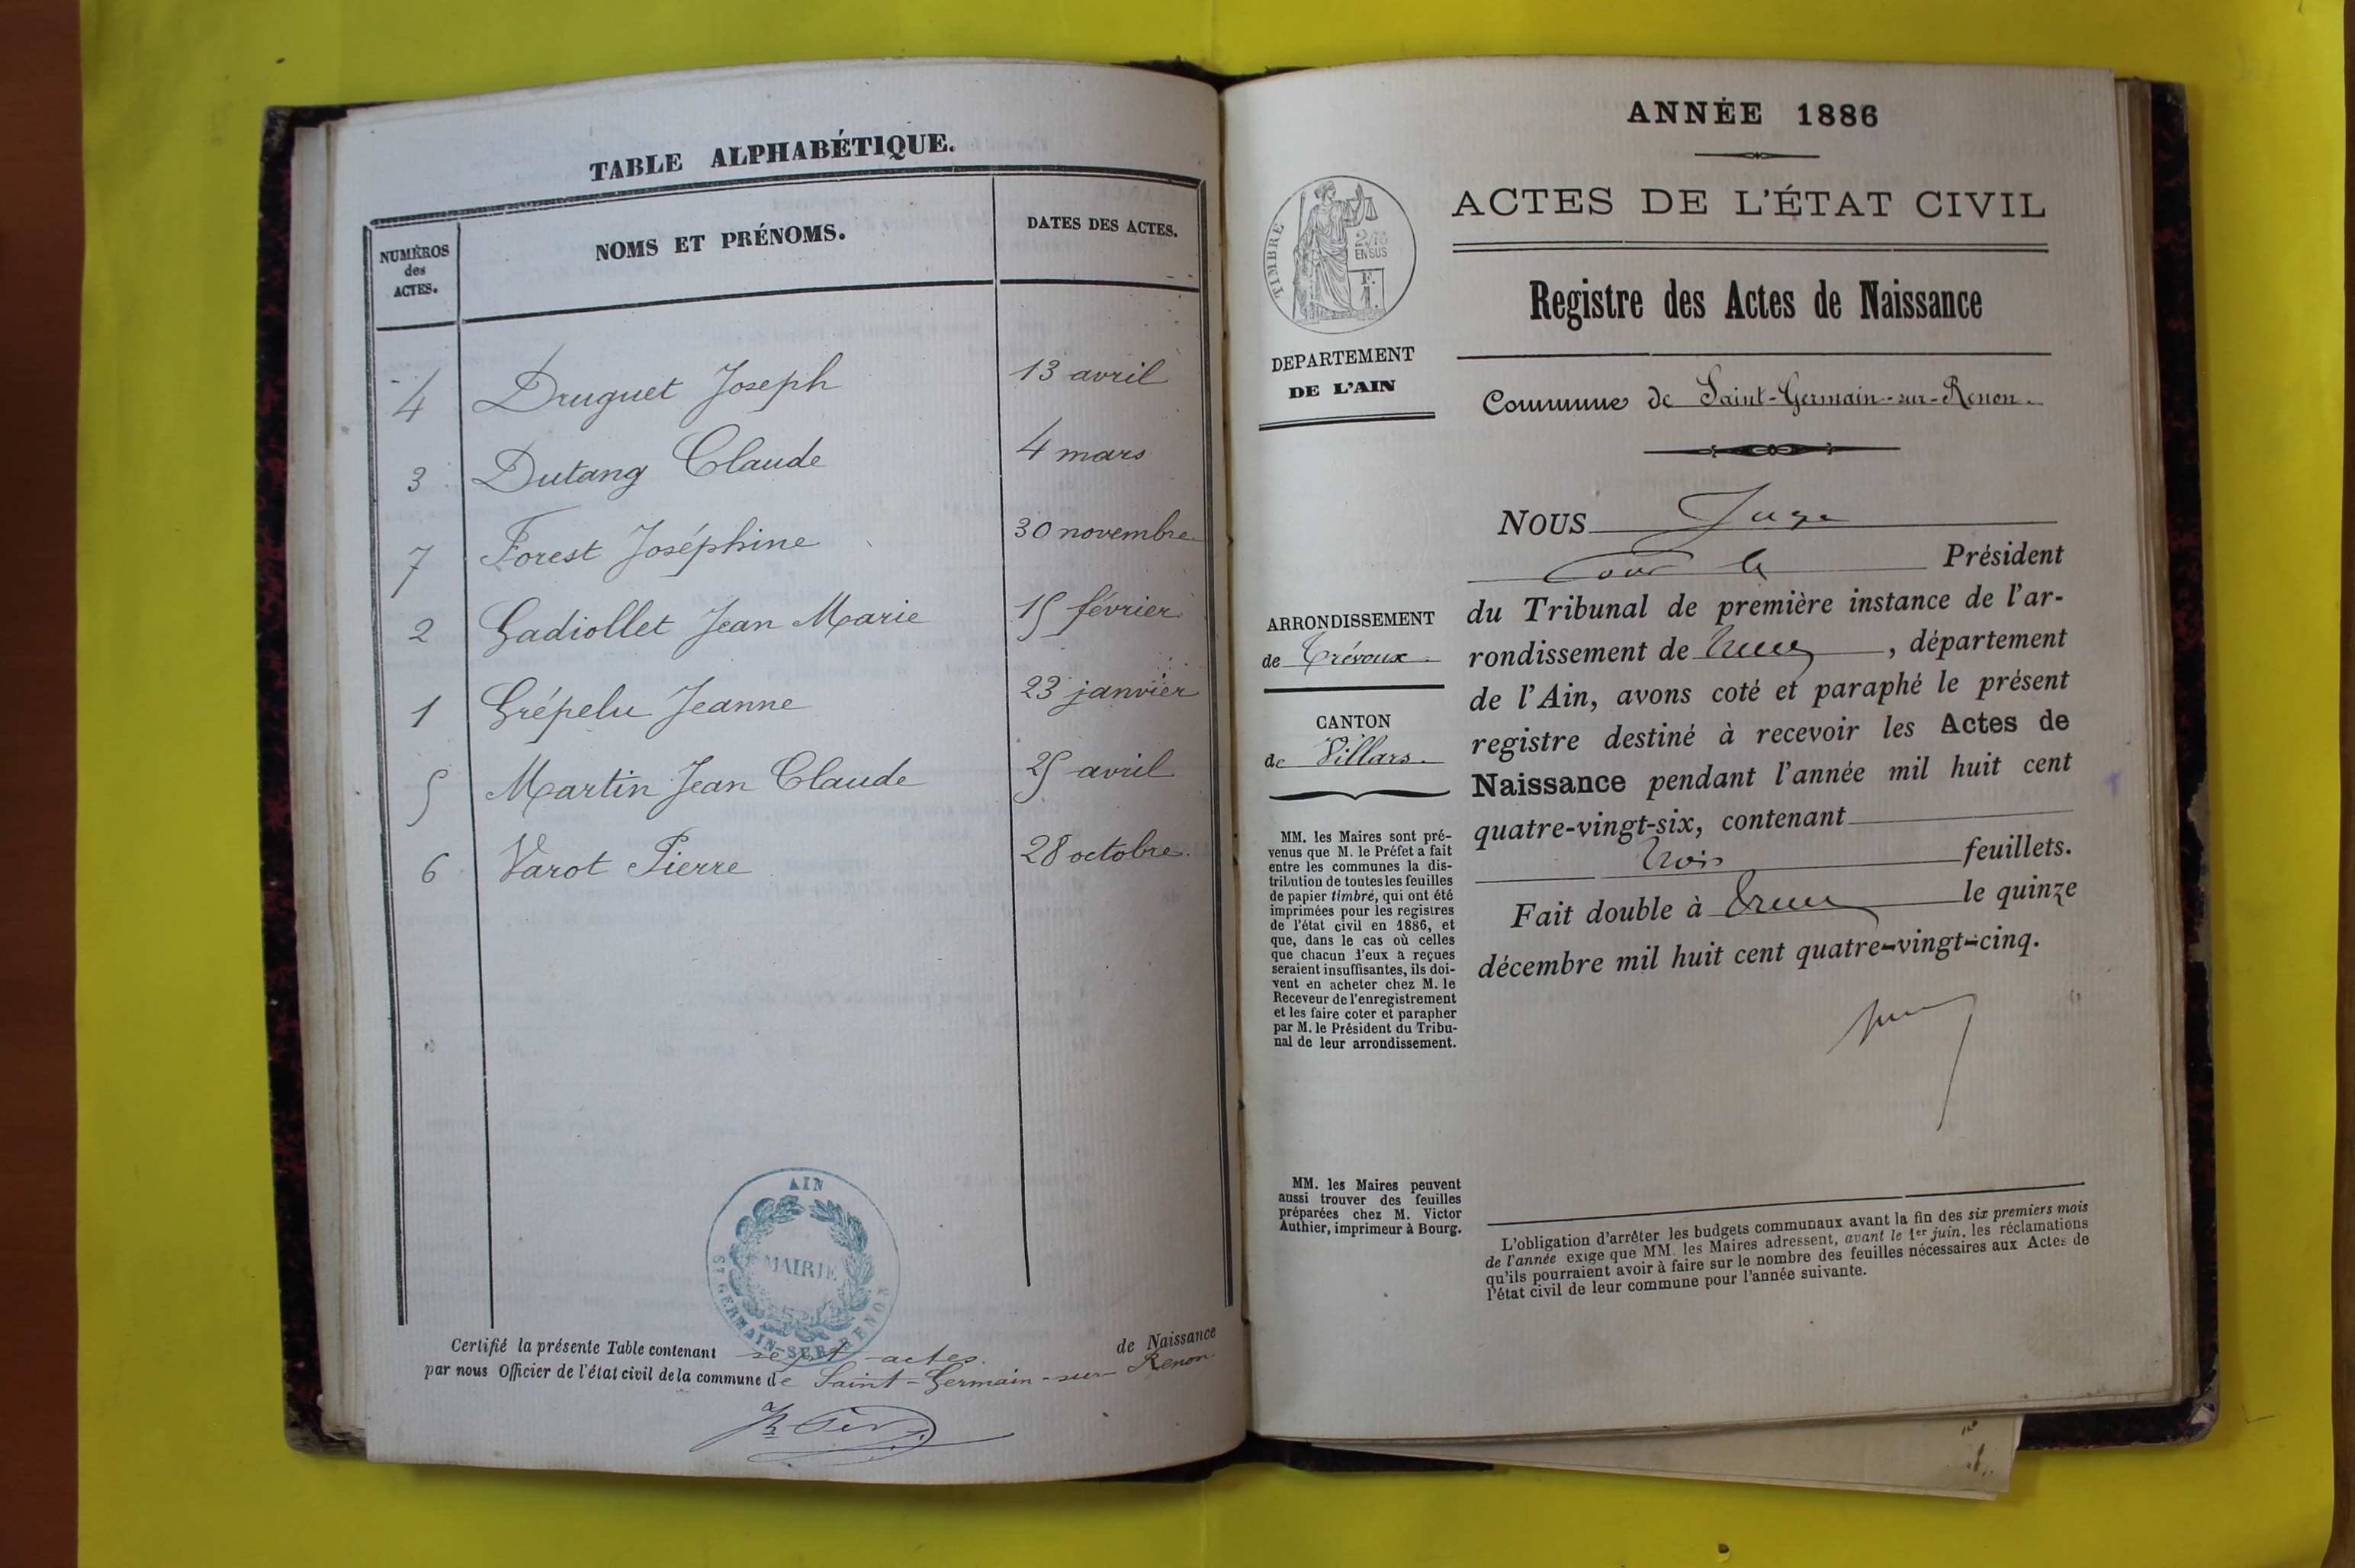 TABLE ALPHABÉTIQUE.
NUMÉROS des ACTES.
NOMS ET PRÉNOMS.
DATES DES ACTES.
4 Druguet Joseph 13 avril
3 Dutang Claude 4 mars
7 Forest Joséphine 30 novembre
2 Gadiollet Jean Marie 15 février
1 Grépelu Jeanne 23 janvier
5 Martin Jean Claude 25 avril
6 Varot Pierre 28 octobre.
AIN
MAIRIE
ST GERMAIN-SUR-RENON
Certifié la présente Table contenant sept actes. de Naissance
par nous Officier de l'état civil de la commune de Saint-Germain-sur-Renon
ANNÉE 1886
ACTES DE L'ÉTAT CIVIL
TIMBRE
2/10
EN SUS
Registre des Actes de Naissance
DEPARTEMENT
DE L'AIN
Commune de Saint-Germain-sur-Renon.
NOUS Juge
pour le Président
du Tribunal de première instance de l'ar-
rondissement de , département
de l'Ain, avons coté et paraphé le présent
registre destiné à recevoir les Actes de
Naissance pendant l'année mil huit cent
quatre-vingt-six, contenant
trois feuillets.
Fait double à le quinze
décembre mil huit cent quatre-vingt-cinq.
ARRONDISSEMENT
de Trévoux.
CANTON
de Villars.
MM. les Maires sont pré-
venus que M. le Préfet a fait
entre les communes la dis-
tribution de toutes les feuilles
de papier timbré, qui ont été
imprimées pour les registres
de l'état civil en 1886, et
que, dans le cas où celles
que chacun d'eux a reçues
seraient insuffisantes, ils doi-
vent en acheter chez M. le
Receveur de l'enregistrement
et les faire coter et parapher
par M. le Président du Tribu-
nal de leur arrondissement.
MM. les Maires peuvent
aussi trouver des feuilles
préparées chez M. Victor
Authier, imprimeur à Bourg.
L'obligation d'arrêter les budgets communaux avant la fin des six premiers mois
de l'année exige que MM. les Maires adressent, avant le 1er juin, les réclamations
qu'ils pourraient avoir à faire sur le nombre des feuilles nécessaires aux Actes de
l'état civil de leur commune pour l'année suivante.